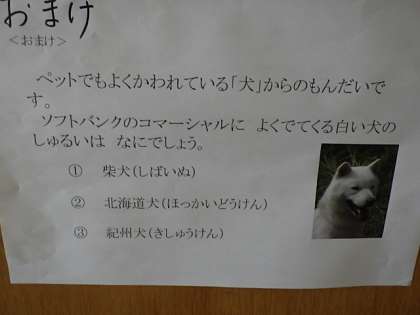 おまけ
<おまけ>
ペットでもよくかわれている「犬」からのもんだいで
す。
ソフトバンクのコマーシャルに よくでてくる白い犬の
しゅるいは なにでしょう。
① 柴犬(しばいぬ)
② 北海道犬(ほっかいどうけん)
③ 紀州犬(きしゅうけん)